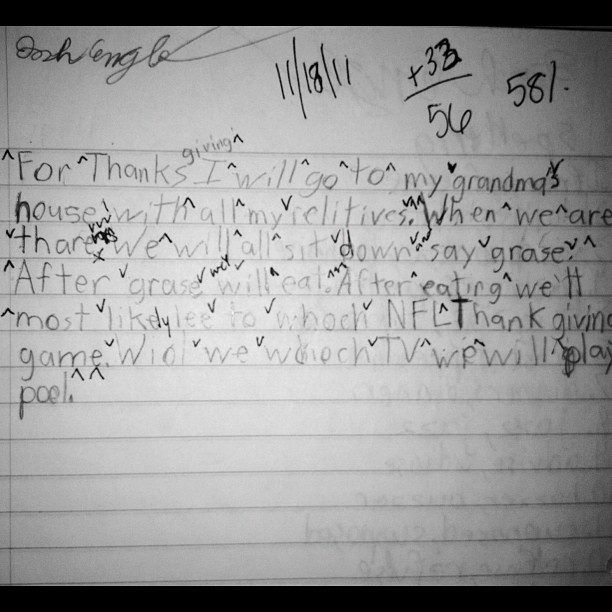 Josh Engle
11/18/11
+33
56
58%
giving
For Thanks I will go to my grandma's
house with all my relitives. When we are
thare we will all sit down say grase.
After grase will eat. After eating we'll
most likely to whoch NFL Thank giving
game. Wiol we whoch TV we will play
pool.